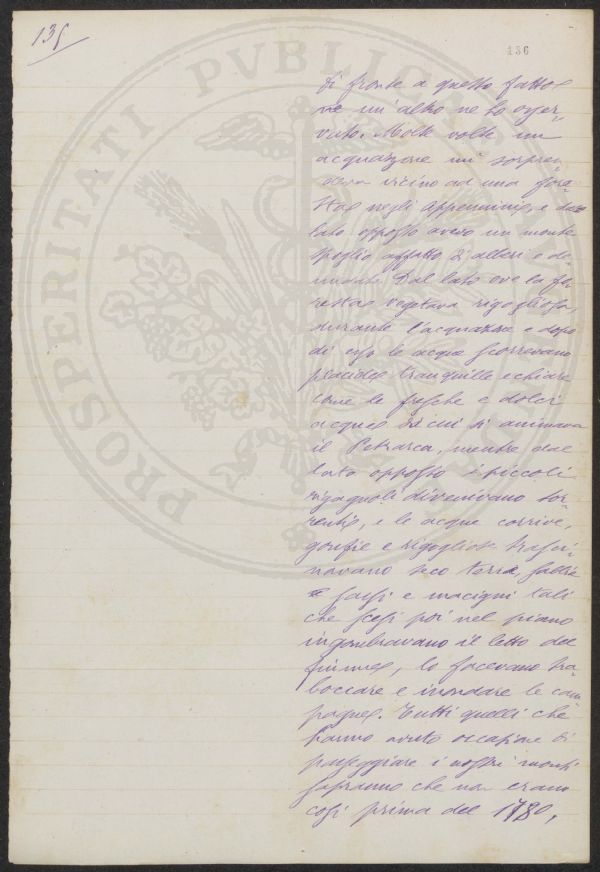 135
136
PROSPERITATI PVBLICAE
Di fronte a questo fatto
ve un'altro ne ho osser-
vato. Molte volte un
acquazzone mi sorpren-
deva vicino ad una fore-
sta negli Appennini, e dal
lato opposto avevo un monte
spoglio affatto d'alberi e de-
nudato. Dal lato ove la fo-
resta vegetava rigogliosa,
durante l'acquazzone e dopo
di esso le acque scorrevano
placide tranquille e chiare
come le fresche e dolci
acque di cui si animava
il Petrarca, mentre dal
lato opposto i piccoli
rigagnoli divenivano tor-
renti, e le acque corrive,
gonfie e rigogliose trasci-
navano seco terra, sabbie
e sassi e macigni tali
che scesi poi nel piano
ingombravano il letto del
fiume, lo facevano tra-
boccare e inondare le cam-
pagne. Tutti quelli che
hanno avuto occasione di
passeggiare i nostri monti
sapranno che non erano
così prima del 1780,